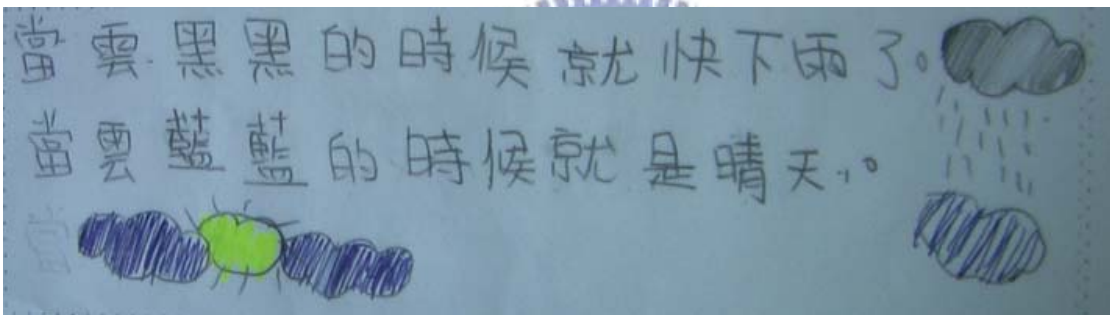 當雲黑黑的時候就快下雨了。
當雲藍藍的時候就是晴天。
當